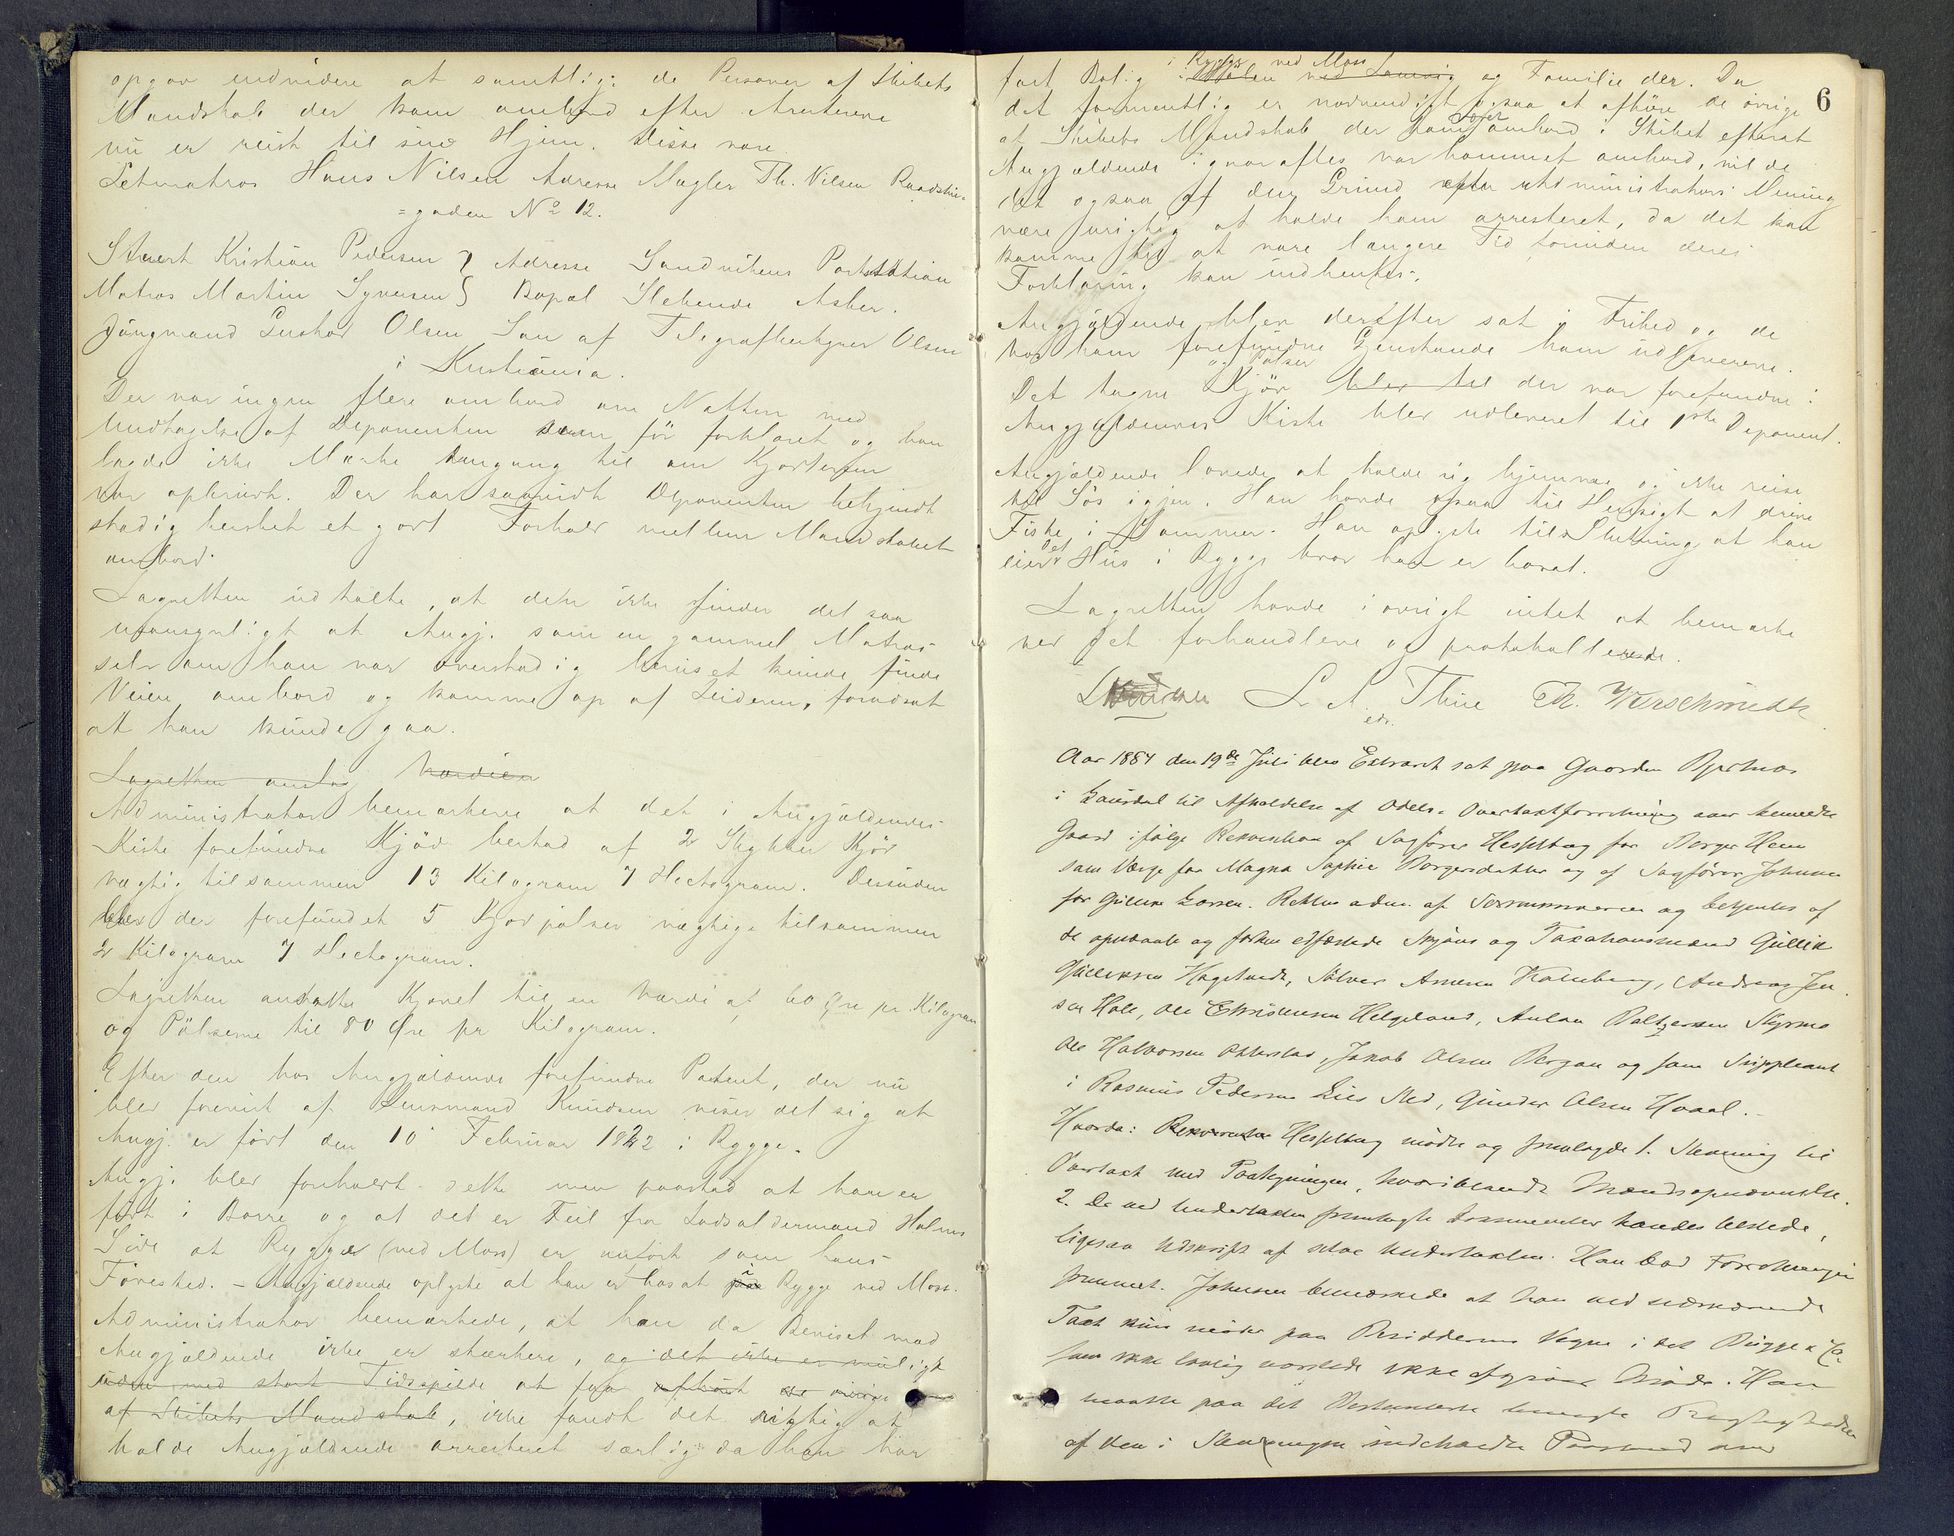 opgav endvidere at samtlige de Personer af Skibets
Mandskab der kom ombord efter Arrestererne
nu er reist til sine Hjem. Disse vare
Letmatros Hans Nilsen Adresse Mægler Th. Nilsen Raadstu-
=gaden No 12.
Stuert Kristian Pedersen } Adresse Sandvikens Poststation
Matros Martin Syversen } Bopæl Slebende Asker.
Jüngmand Gustav Olsen Søn af Telegrafbestyrer Olsen
i Kristiania.
Der var ingen flere ombord om Natten med
Undtagelse af Deponenten som før forklaret og han
lagde ikke Mærke dengang til om
var opbrudt. Der har saavidt Deponenten bekjendt
stadig hersket et godt Forhold mellem Mandskabet
ombord.
Lagretten udtalte, at den ikke finder det saa
usansynligt at Angj. som en gammel Matros
selv om han var overstadig beruset kunde finde
Veien ombord og komme op af Leideren, forudsat
at han kunde gaa.
Lagretten Værdien
Administrator bemærkede at det i Angjældendes
Kiste forefundne Kjød bestod af 2 Stykker Kjød
vægtig tilsammen 13 Kilogram 7 Hectogram. Desuden
blev der forefundet 5 Kjødpølser vægtige tilsammen
2 Kilogram 7 Hectogram.
Lagretten ansatte Kjødet til en Værdi af 60 Øre pr. Kilogram
og Pølserne til 80 Øre pr Kilogram.
Efter den hos Angjældende forefundne Patent, der nu
blev forevist af Lensmand Knudsen viser det sig at
Angj. er født den 10 Februar 1842 i Rygge.
Angj. blev foreholdt dette men paastod at han er
født i Borre og at det er Feil fra Lodsoldermand Holms
Side at Rygge (ved Moss) er anført som hans
Fødested. – Angjældende oplyste at han er bosat i Rygge ved Moss.
Administrator bemærkede, at han da Beviset mod
Angjældende ikke er stærkere, og det ikke er muligt
uden med stort Tidsspilde at faa afhørt de øvrige
af Skibets Mandskab, ikke fandt det rigtig at
holde Angjældende arresteret særlig da han har
6
i Rygge ved Moss
fast Bolig og Familie der. Da
det formentlig er nødvendigt ogsaa at afhøre de øvrige
af Skibets Mandskab der kom ombord i Skibet efterat
Angjældende igaar aftes var kommet ombord, vil de
det ogsaa af den Grund efter Administrators Mening
være urigtig at holde ham arresteret, da det kan
komme til at vare længere Tid forinden deres
Forklaring kan indhentes.
Angjældende blev derefter sat i Frihed og de
hos ham forefundne Gjenstande ham udleverede.
og Pølser
Det tagne Kjød blev til der var forefundne i
Angjældendes Kiste blev udleveret til 1ste Deponent.
Angjældende lovede at holde sig hjemme og ikke reise
til Søs igjen. Han havde ogsaa til Hensigt at drive
Fiske i Sommer. Han oplyste til Slutning at han
eier det Hus i Rygge hvor han er bosat.
Lagretten havde i øvrigt intet at bemærke
ved det forhandlede og protokollerede.
L. A. Thue Th. Wurschmidt
edr.
Aar 1884 den 19de Juli blev Extraret sat paa Gaarden Bjertnæs
i Sandsdal til Afholdelse af Odels- Overtaxtforretning over bemeldte
Gaard ifølge Rekvisition af Sagfører Hesselberg for Borger Hem
som Værge for Magna Sophie Borgersdatter og af Sagfører Johnsen
for Gulline Larsen. Retten adm. af Sorenskriveren og betjentes af
de opnævnte og forhen edfæstede Skjøns og Taxationsmænd Gullik
Gulliksen Hagelund, Sølver Arnesen Holmberg, Andreas Jen-
sen Holt, Ole Christensen Helgeland, Anton Baltzersen Skyrmo
Ole Halvorsen, Jakob Olsen Bergan og som Suppleant
i Rasmus Pedersen Lies Sted, Gunder Olsen Hvaal.
Hvorda: Hesselberg mødte og fremlagde 1. Stevning til
Overtaxt med Paategninger, hvoriblandt Mændsopnævnelse.
2. De ved Undertaxten fremlagte Documenter havdes tilstede,
ligesaa Udskrift af selve Undertaxten. Han bad Forretningen
fremmet. Johnsen bemærkede at han ved nærværende
Taxt kun møder paa Besidderens Vegne i det
som ikke lovlig varslede ikke afgiver Møde. Han
maatte paa det Bestemteste benægte Rigtigheden
af den i Stevningen indeholdte Paastand om